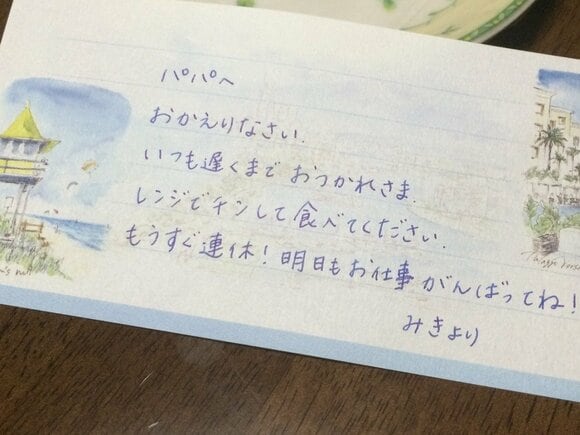 パパへ
おかえりなさい.
いつも遅くまで おつかれさま.
レンジでチンして食べてください.
もうすぐ連休! 明日もお仕事がんばってね!
みきより